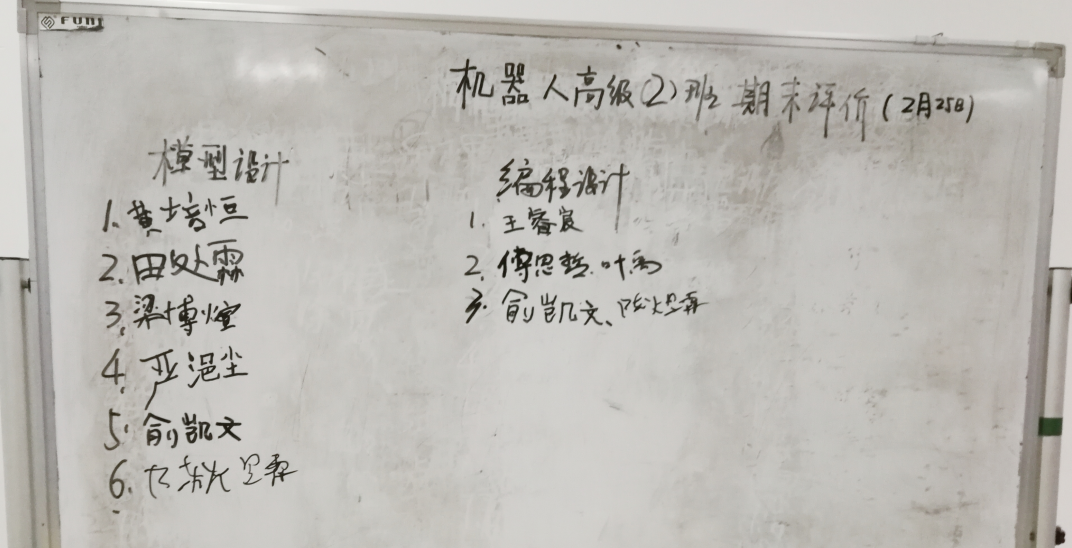 机器人高级(2)班 期末评价(2月25日)
模型设计
1. 黄培恒
2. 田处霖
3. 梁博煊
4. 严浥尘
5. 俞凯文
6.
编程设计
1. 王睿宸
2. 傅思哲、叶雨
3. 俞凯文、